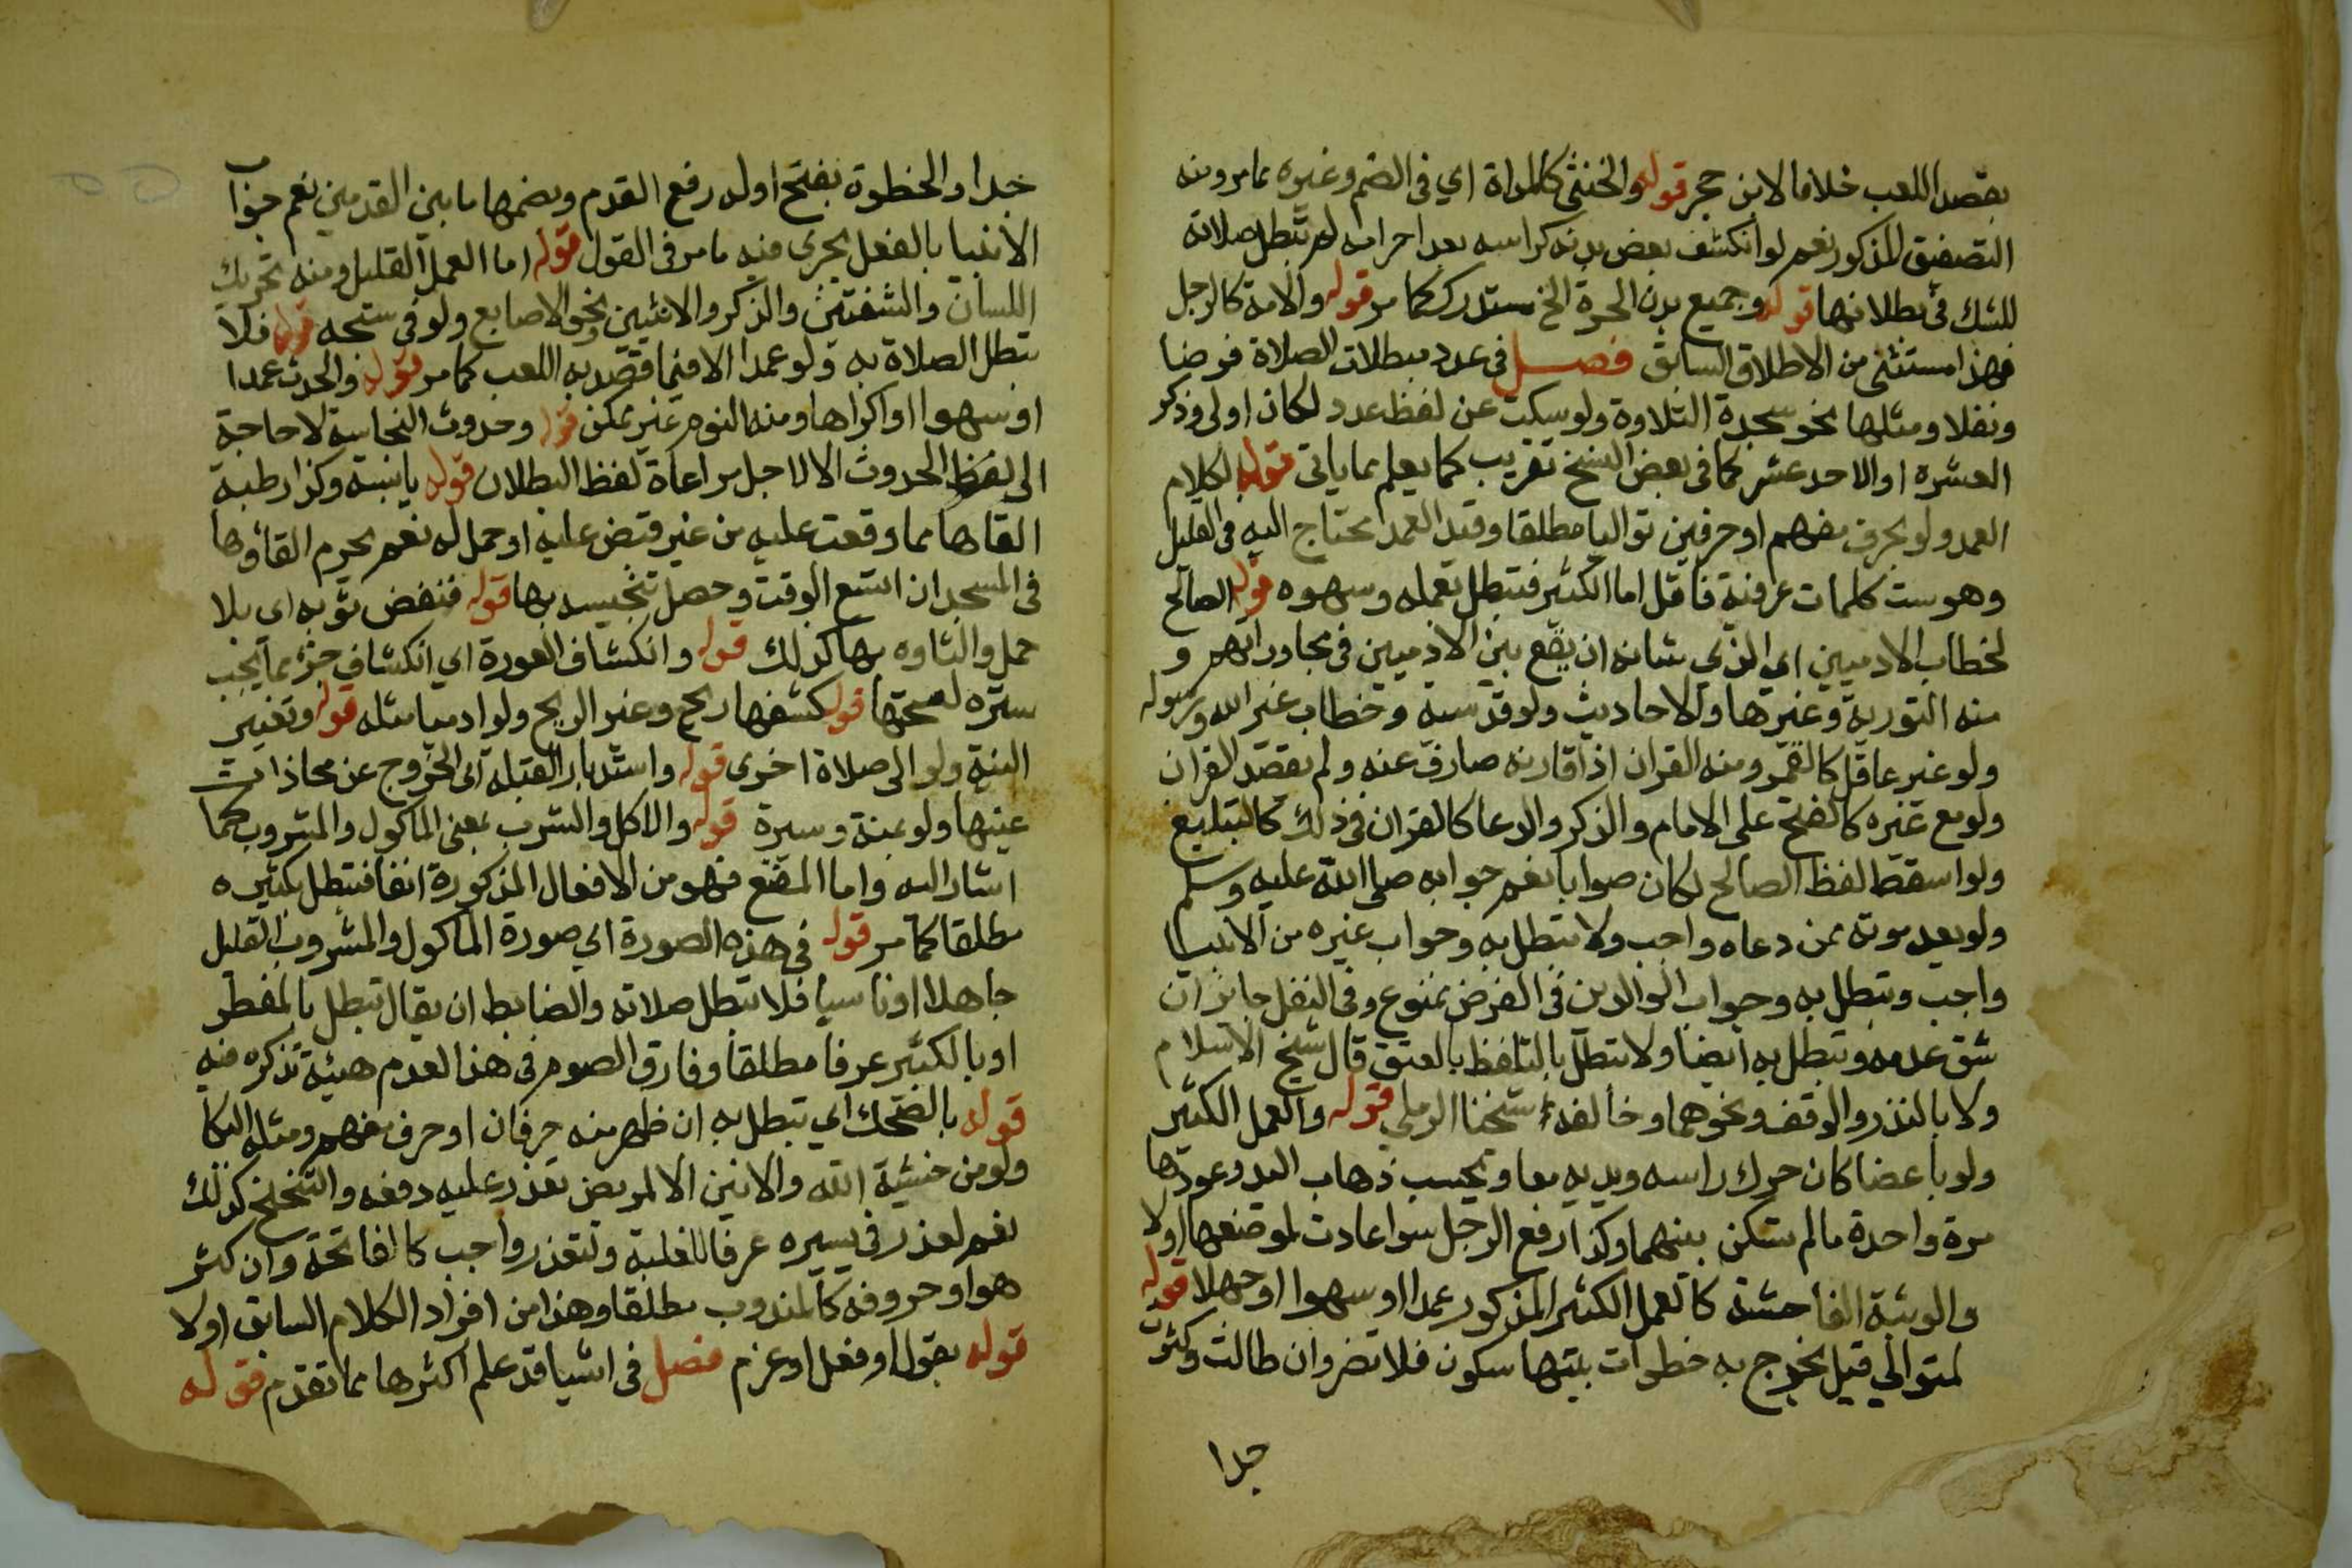 بقصد اللعب خلافا لابن حجر قوله والخنثى كالمراة اي في الضم وغيره مما مر ومنه
التصفيق المذكور نعم لو انكشف بعض بدنه كراسه بعد احرامه لم تبطل صلاته
للشك في بطلانها قوله وجميع بدن الحرة الخ مستدرك كما مر قوله والامة كالرجل
فهذا مستثنى من الاطلاق السابق فصل في عدد مبطلات الصلاة فرضا
ونفلا ومثلها نحو سجدة التلاوة ولو سكت عن لفظ عدد لكان اولى وذكر
العشرة او الاحد عشر كما في بعض النسخ تقريب كما يعلم مما ياتي قوله الكلام
العمد ولو بحرف مفهم او حرفين تواليا مطلقا وقيد العمد يحتاج اليه في القليل
وهو ست كلمات عرفية فاقل اما الكثير فتبطل بعمله وسهوه قوله الصالح
لخطاب الادميين اي الذي شانه ان يقع بين الادميين في محاوراتهم و
منه التورية وغيرها والاحاديث ولو قدسية وخطاب غير الله ورسوله
ولو غير عاقل كالقمر ومنه القران اذا قارنه صارف عنه ولم يقصد القران
ولو مع غيره كالفتح على الامام والذكر والدعا كالقران في ذلك كالتبليغ
ولو اسقط لفظ الصالح لكان صوابا نعم جوابه صلى الله عليه وسلم
ولو بعد موته ممن دعاه واجب ولا تبطل به وجواب غيره من الانبيا
واجب وتبطل به وجواب الوالدين في الفرض ممنوع وفي النفل جايز ان
شق عدمه وتبطل به ايضا ولا تبطل بالتلفظ بالعتق قال شيخ الاسلام
ولا بالنذر والوقف ونحوهما وخالفه شيخنا الرملي قوله والعمل الكثير
ولو باعضا كان حرك راسه ويديه معا ويحسب ذهاب اليد وعودها
مرة واحدة ما لم تسكن بينهما وكذا رفع الرجل سوا عادت لموضعها او لا
والوثبة الفاحشة كالعمل الكثير المذكور عمدا او سهوا او جهلا قوله
المتوالي قيل يخرج به خطوات بينها سكون فلا تضر وان طالت وكثرت
جدا
جدا والخطوة بفتح اوله رفع القدم وبضمها ما بين القدمين نعم جواب
الانبيا بالفعل يجري فيه ما مر في القول قوله اما العمل القليل ومنه تحريك
اللسان والشفتين والذكر والانثيين ونحو الاصابع ولو في سبحه قوله فلا
تبطل الصلاة به ولو عمدا الا فيما قصد به اللعب كما مر قوله والحدث عمدا
او سهوا او اكراها ومنه النوم غير ممكن قوله وحدوث النجاسة لا حاجة
الى لفظ الحدوث الا لاجل مراعاة لفظ البطلان قوله يابسة وكذا رطبة
القاها مما وقعت عليه من غير قبض عليه او حمل له نعم يحرم القاؤها
في المسجد ان اتسع الوقت وحصل تنجيسه بها قوله فنفض ثوبه اي بلا
حمل والثاوه بها كذلك قوله وانكشاف العورة اي انكشاف جزء مما يجب
ستره لصحتها قوله كشفها ريح وغير الريح ولو ادميا مثله قوله وتغيير
النية ولو الى صلاة اخرى قوله واستدبار القبلة اي الخروج عن محاذات
عينها ولو يمنة ويسرة قوله والاكل والشرب بمعنى الماكول والمشروب كما
اشار اليه واما المضغ فهو من الافعال المذكورة انفا فتبطل بكثيره
مطلقا كما مر قوله في هذه الصورة اي صورة الماكول والمشروب القليل
جاهلا او ناسيا فلا تبطل صلاته والضابط ان يقال تبطل بالمفطر
او بالكثير عرفا مطلقا وفارق الصوم في هذا لعدم هيئة تذكره فيه
قوله بالضحك اي تبطل به ان ظهر منه حرفان او حرف مفهم ومثله البكا
ولو من خشية الله والانين الا لمريض تعذر عليه دفعه والتنحنح كذلك
نعم لعذر في يسيره عرفا للغلبة ولتعذر واجب كالفاتحة وان كثر
هو او حروفه كالمندوب مطلقا وهذا من افراد الكلام السابق او لا
قوله بقول او فعل او عزم فصل في اشيا قد علم اكثرها مما تقدم قوله